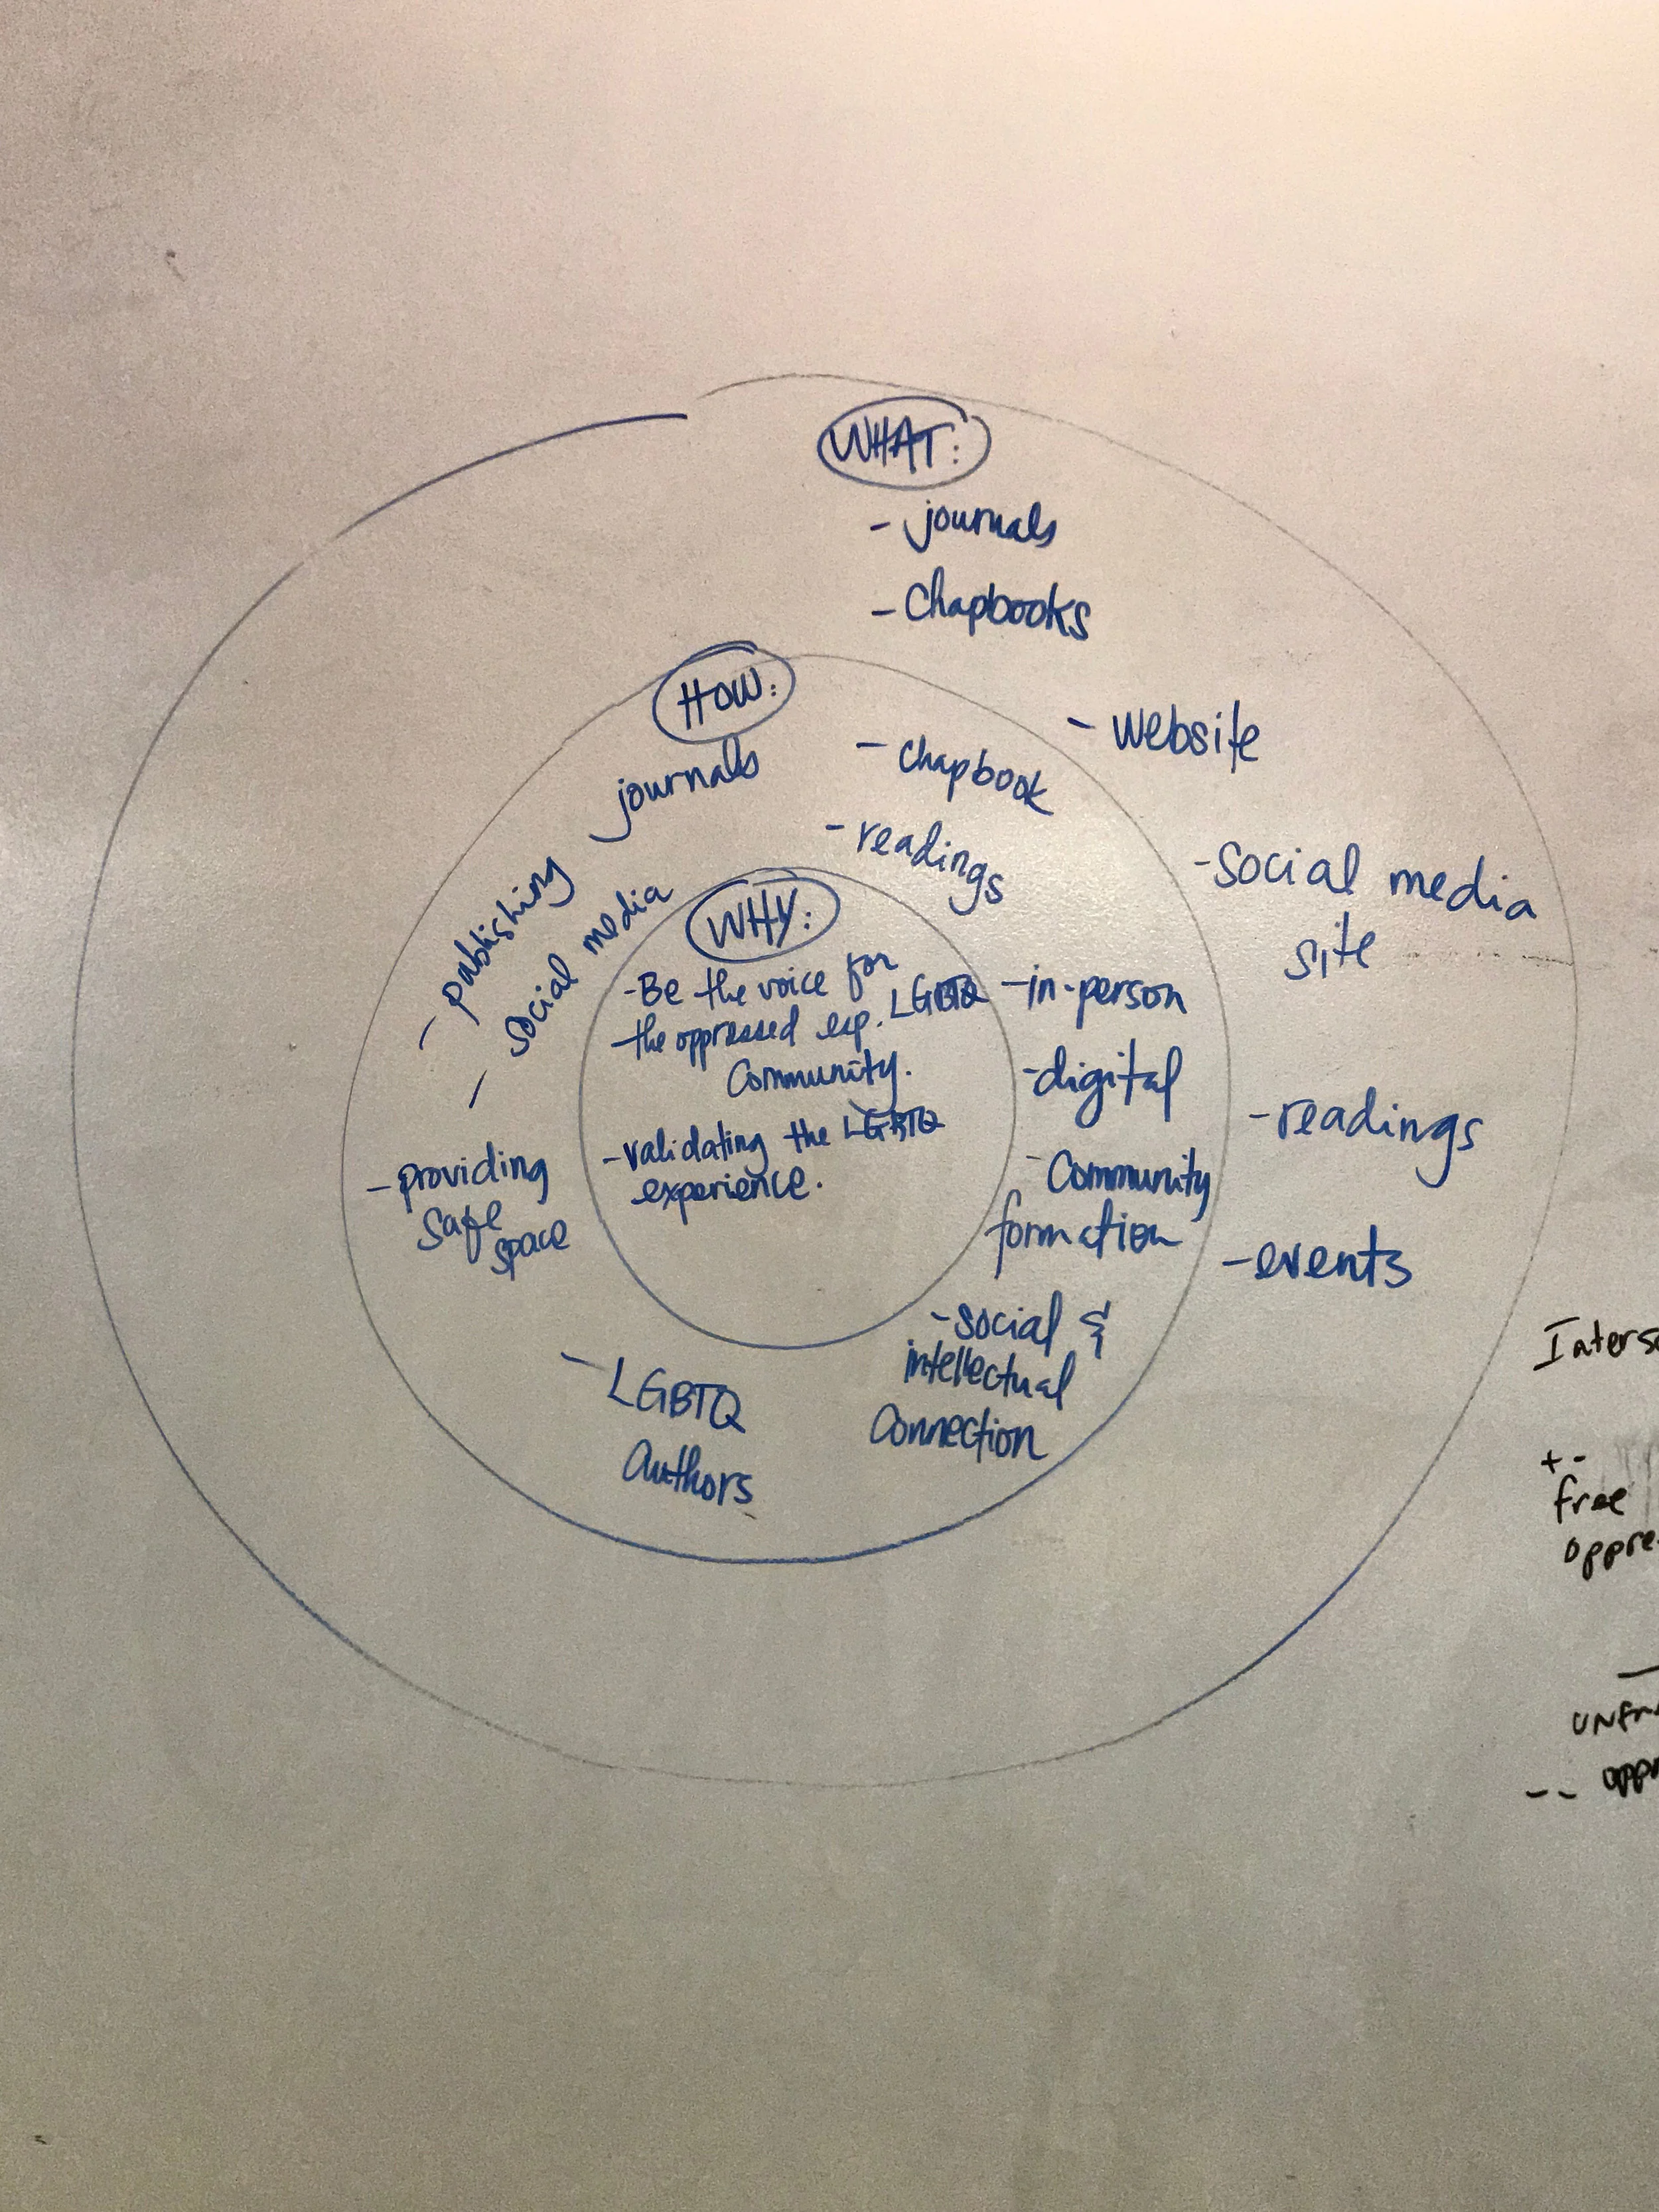 WHAT:
- journals
- Chapbooks
- Website
- Social media
site
- readings
- events
HOW:
journals
- publishing
- social media
- providing
safe
space
- LGBTQ
Authors
- chapbook
- readings
- in-person
- digital
- Community
formation
- social &
intellectual
Connection
WHY:
- Be the voice for
the oppressed esp. LGBTQ
Community.
- validating the LGBTQ
experience.
+ -
free
- -